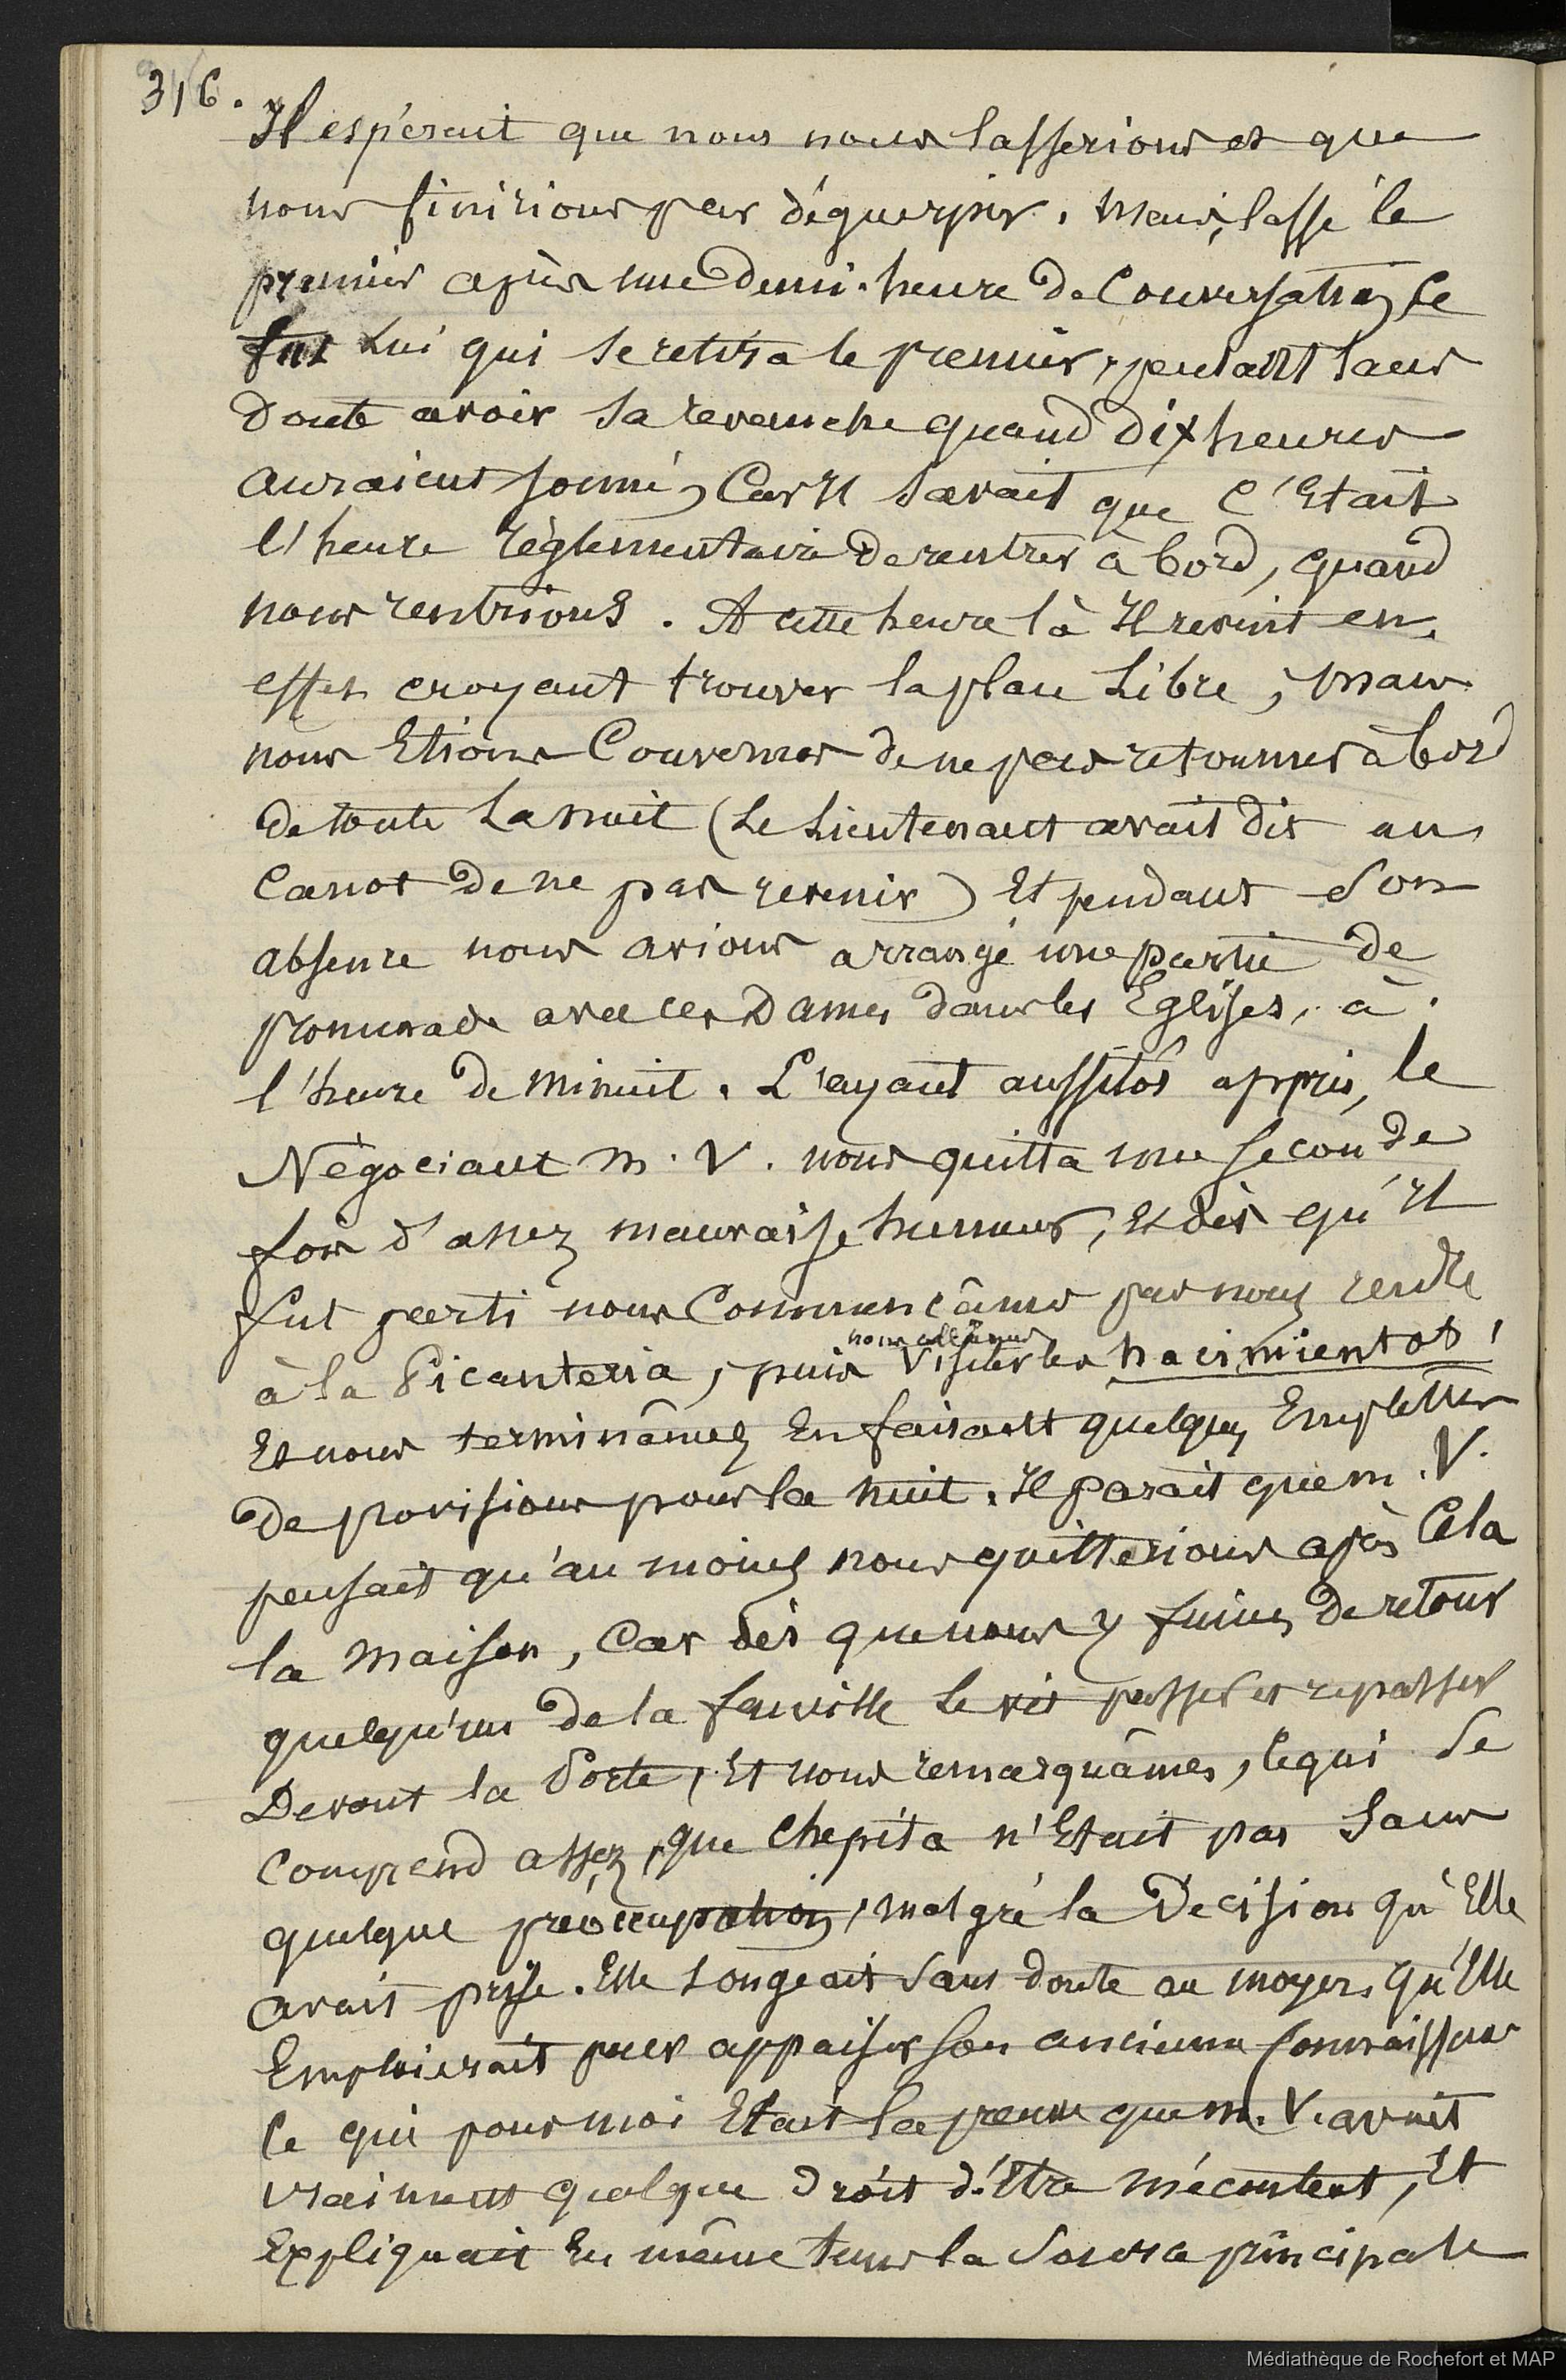 316.
Il espérait que nous nous lasserions et que
nous finirions par déguerpir. Mais, lassé le
premier après une demi-heure de Conversation, Ce
fut Lui qui se retira le premier, pensant sans
doute avoir sa revanche quand dix heures
auraient sonné, Car Il savait que C'Etait
l'heure règlementaire de rentrer à bord, quand
nous rentrions. A cette heure là Il revint en
effet croyant trouver la place Libre ; mais
nous Etions Convenus de ne pas retourner à bord
de toute La nuit (Le Lieutenant avait dit au
Canot de ne pas revenir) Et pendant Son
absence nous avions arrangé une partie de
promenade avec ces Dames dans les Eglises, à
l'heure de minuit. L'ayant aussitôt appris, le
Négociant M. V. nous quitta une seconde
fois d'assez mauvaise humeur, Et dès qu'Il
fut parti nous Commencâmes par nous rendre
à la Picanteria, puis nous allâmes Visiter les nacimientos,
Et nous terminâmes En faisant quelques Emplettes
De provisions pour la nuit. Il parait que M. V.
pensait qu'au moins nous quitterions après Cela
la maison, Car dès que nous y fumes De retour
quelqu'un de la famille Le vit passer et repasser
Devant la Porte, Et nous remarquâmes, Ce qui Se
Comprend assez, que Chepita n'Etait pas Sans
quelque préoccupation, malgré la Decision qu'Elle
avait prise. Elle Songeait Sans doute au moyen qu'Elle
Emploierait pour appaiser Son ancienne Connaissance
Ce qui pour moi Etait la preuve que M. V. avait
vraiment quelque droit d'Etre mécontent, Et
Expliquait En même tems la Source principale
Médiathèque de Rochefort et MAP